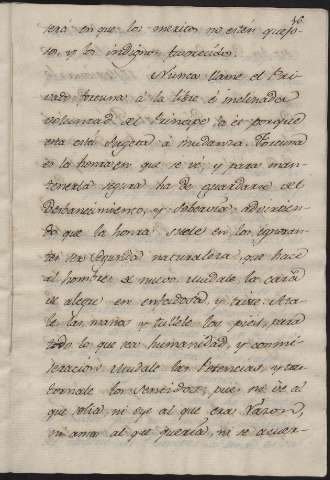 16.
será en que los meritos no estén quejo-
sos, y los indignos favorecidos.
Nunca llame el Pri-
vado fortuna á la libre é inclinada
voluntad del Principe, ó es porque
esta está sugeta á mudanza. Fortuna
es la honra en que se vé, y para man-
tenerla segura ha de guardarse del
Desbanecimiento, y Soberbia, advirtien-
do que la honra suele en los ignoran-
tes ser segunda naturaleza, que hace
al hombre de nuevo, mudale la cara
de alegre en enfadosa, y triste. Ata-
le las manos y tullele los pies, para
todo lo que sea humanidad, y conmi-
seracion, mudale las Potencias, y tras-
tornale los sentidos, pues no ve al
que solia, ni oye al que era razon,
ni ama al que queria, ni se acuer-